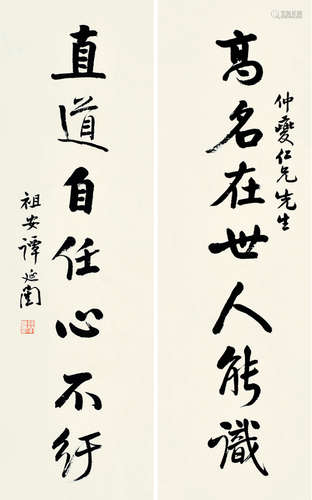 高名在世人能識
仲夔仁兄先生
直道自任心不紆
祖安譚延闓